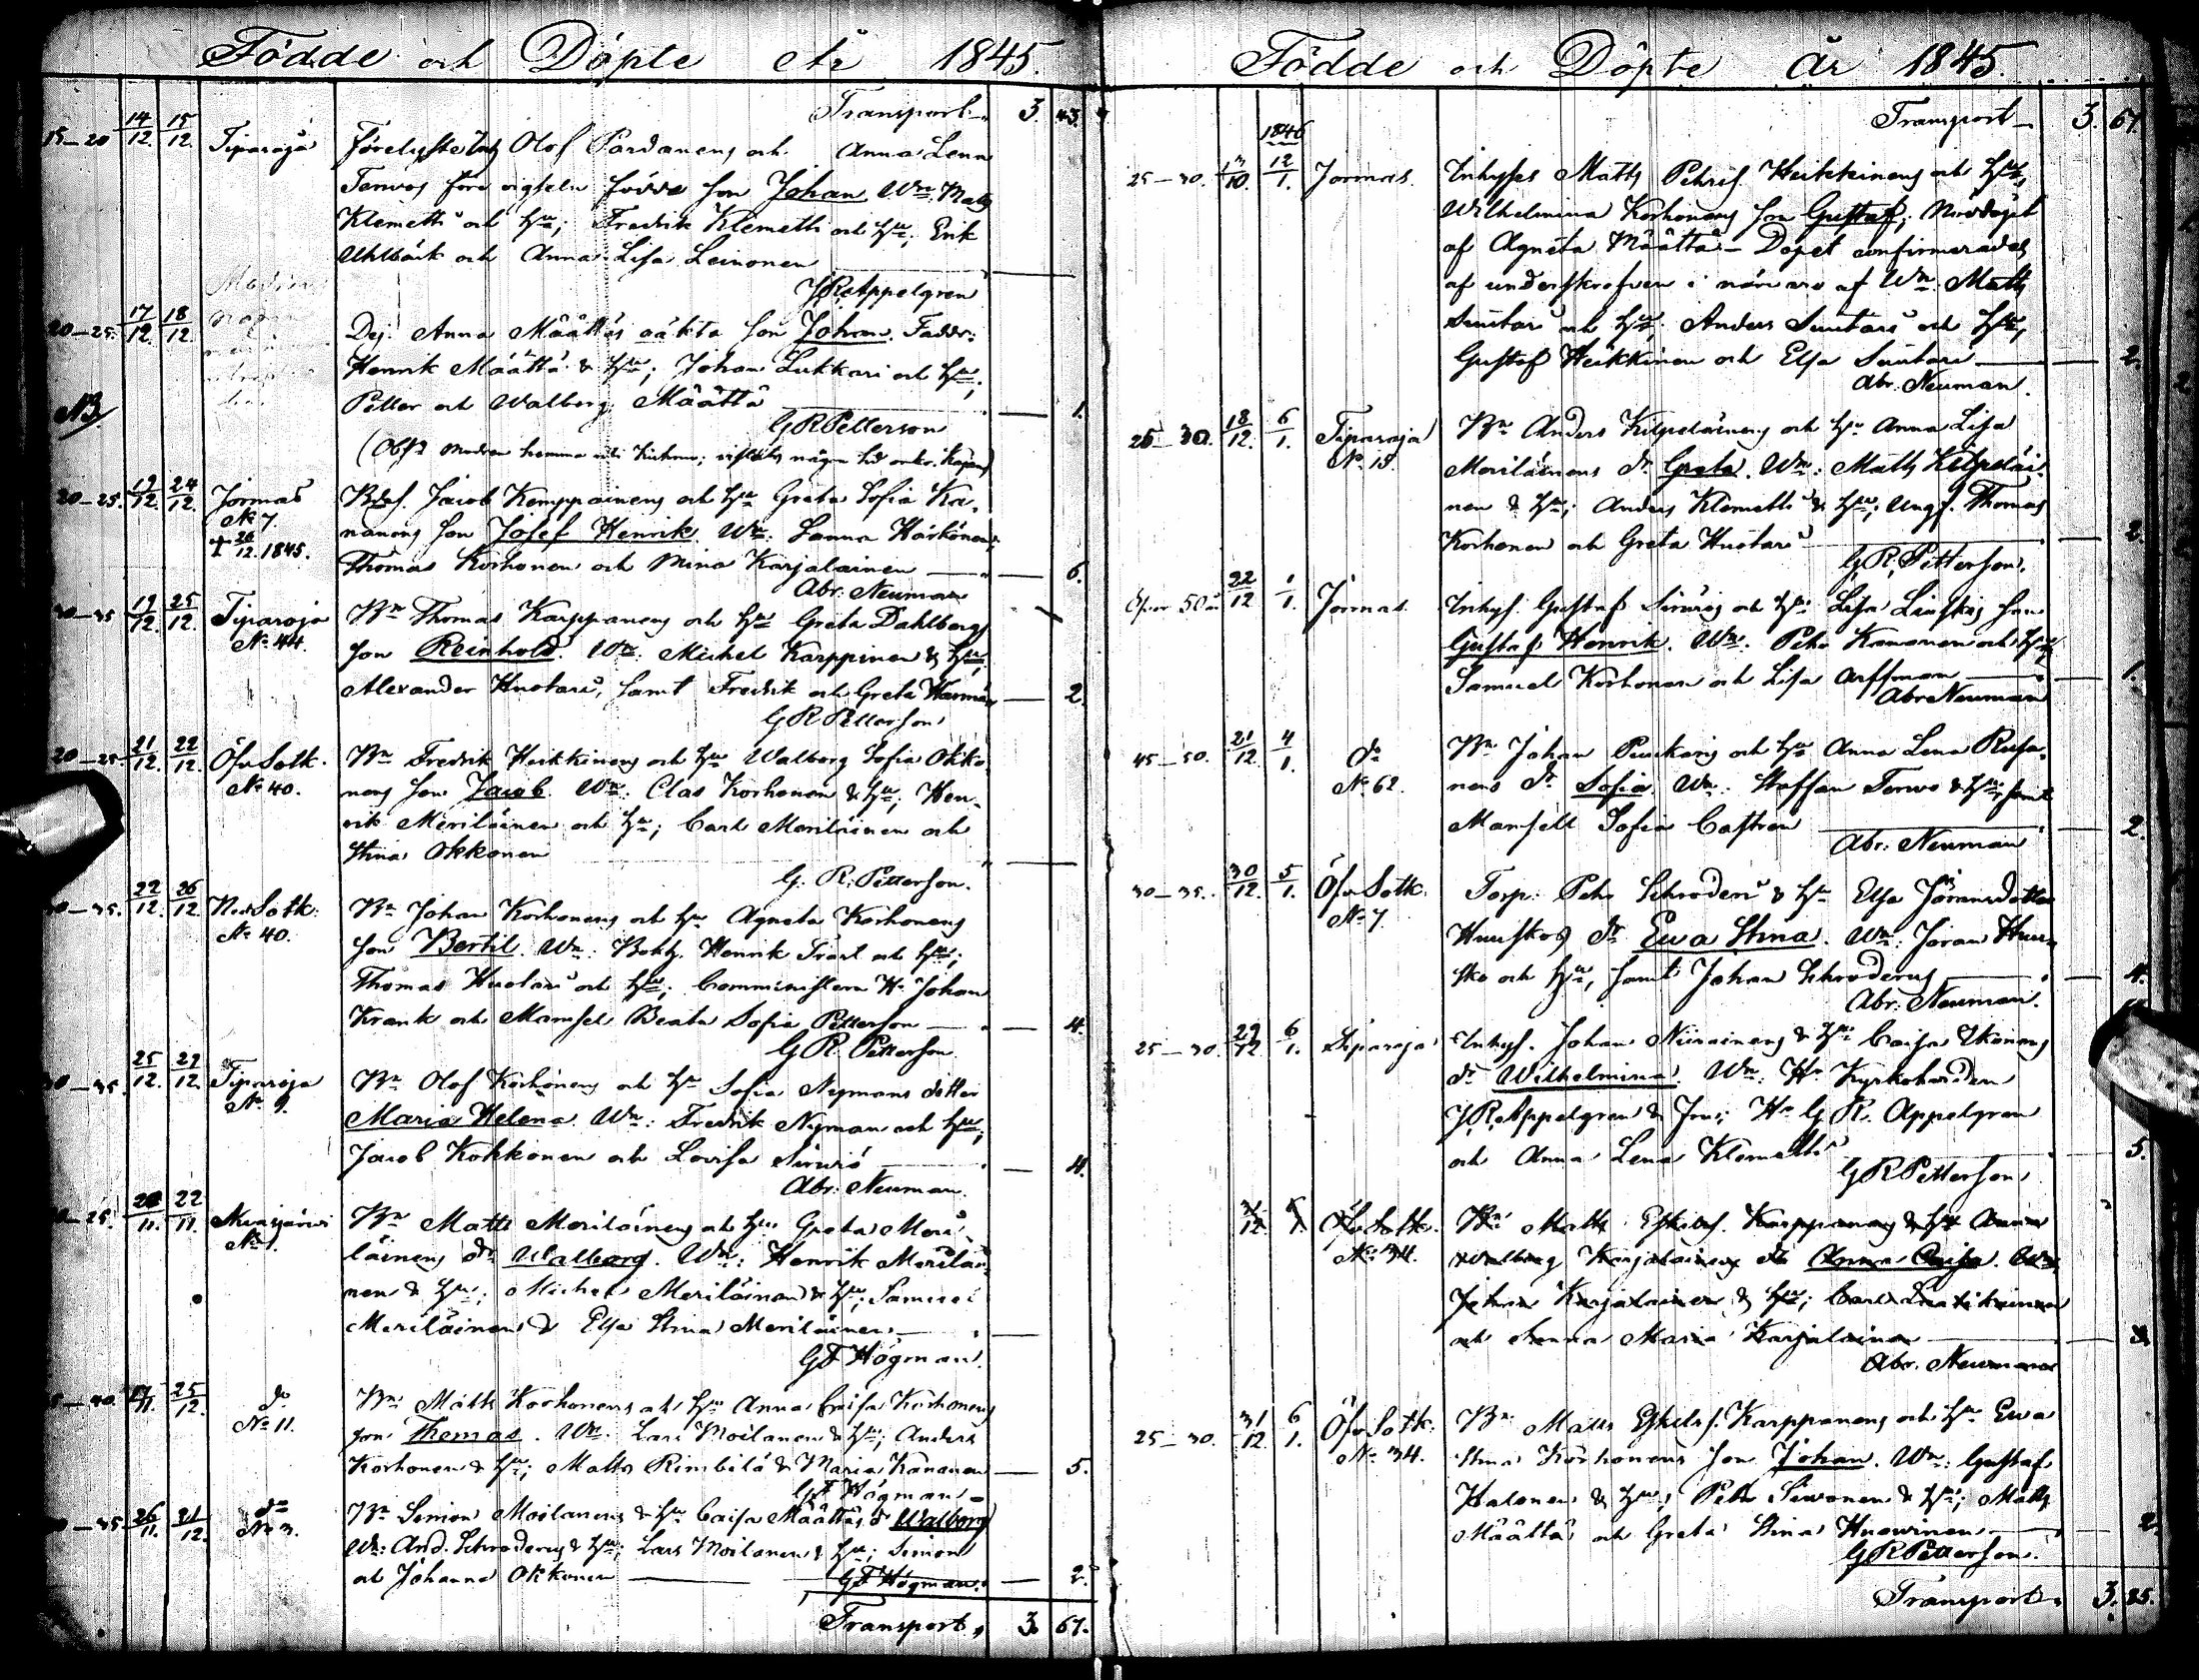 Födde och Döpte År 1845.
Transport 3. 43.
15–20 14/12. 15/12. Tiparoja Förelyste Olof Pardanens och Anna Lena
Tervos före vigseln födde son Johan. Wn. Matts
Klemetti och Hu; Fredrik Klemetti och Hu; Erik
Uhlbäck och Anna Lisa Leinonen
J. R. Appelgren
20–25. 17/12. 18/12. Dej. Anna Määttäs oäkta son Johan. Faddr:
Henrik Määttä & Hu; Johan Lukkari och Hu;
Petter och Walborg Määttä 1.
NB G R Petterson
20–25. 19/12. 24/12. Jormas Jacob Kemppainens och Hu Greta Sofia Ka-
No 7. nanens son Josef Henrik. Wn: Sanna Härkönen,
† 26/12. 1845. Thomas Korhonen och Mina Karjalainen 6.
Abr. Neuman
30–35 19/12. 25/12. Tiparoja Bn Thomas Karppanens och Hu Greta Dahlbergs
No 44. son Reinhold. Wn: Michel Karppinen & Hu;
Alexander Huotari, samt Fredrik och Greta 2.
G R Petterson
20–25 21/12. 22/12. Öfv Sotk. Bn Fredrik Heikkinens och Hu Walborg Sofia Okko-
No 40. nens son Jacob. Wn: Clas Korhonen & Hu; Hen-
rik Meriläinen och Hu; Carl Meriläinen och
Stina Okkonen
G. R. Petterson.
30–35. 22/12. 26/12. Ned Sotk. Bn Johan Korhonens och Hu Agneta Korhonens
No 40. son Bertil. Wn: Henrik Trast och Hu;
Thomas Huotari och Hu; Comministern Hr Johan
Krank och Mamsel Beata Sofia Petterson 4.
G R. Petterson.
30–35. 25/12. 27/12. Tiparoja Bn Olof Korhonens och Hu Sofia Nymans dotter
No 9. Maria Helena. Wn: Fredrik Nyman och Hu;
Jacob Kokkonen och Lovisa Sirviö 4.
Abr. Neuman.
20–25. 20/11. 22/11. Bn Matts Meriläinens och Hu Greta Meri-
No 1. läinens dr Walborg. Wn: Henrik Meriläi-
nen & Hu; Michel Meriläinen & Hu; Samuel
Meriläinen & Elsa Stina Meriläinen
G F Högman.
17/11. 25/12. do Bn Matts Korhonens och Hu Anna Caisa Korhonens
No 11. son Thomas. Wn: Lars Moilanen & Hu; Anders
Korhonen & Hu; Matts Rimbilä & Maria Kananen 5.
G F Högman
26/11. 21/12. do Bn Simon Moilanens & Hu Caisa Määttäs dr Walborg
No 3. Wn: And. Schroderus & Hu; Lars Moilanen & Hu; Simon
och Johanna Okkonen 2.
G F Högman.
Transport 3. 67.
Födde och Döpte År 1845.
Transport 3. 67.
1846
25–30. 12/1. Jormas. Inhyses Matts Petris. Heikkinens och Hus
Wilhelmina Korhonens son Gustaf; Nöddöpt
af Agneta Määttä – Dopet confirmerades
af underskrefven i närvaro af Wn: Matts
Suutari och Hu; Anders Suutari och Hu;
Gustaf Heikkinen och Elsa Suutari 2.
Abr. Neuman.
25–30. 18/12. 6/1. Tiparoja Bn Anders Kilpeläinens och Hu Anna Lisa
No 15. Meriläinens dr Greta. Wn: Matts Kilpeläi-
nen & Hu; Anders Klemetti & Hu; Ungf. Thomas
Korhonen och Greta Huotari 2.
G. R. Petterson.
Öfver 50 år 22/12. 1/1. Jormas. Inhys. Gustaf Sirviös och Hu Lisa son
Gustaf Henrik. Wn: Petr Kananen och Hu;
Samuel Korhonen och Lisa Arffman 1.
Abr Neuman
45–50. 21/12. 4/1. do Bn Johan och Hu Anna Lena
No 62. nens dr Sofia. Wn: Staffan Tervo & Hu, samt
Mamsell Sofia Castren 2.
Abr. Neuman
30–35. 30/12. 5/1. Öfv Sotk. Torp. Petr Schroderi & Hu Elsa Jöransdotter
No 7. Huuskos dr Ewa Stina. Wn: Jöran Huu-
sko och Hu, samt Johan Schroderus 4.
Abr. Neuman.
25–30. 29/12. 6/1. Tiparoja Inhys. Johan Niiranens & Hu Caisa
dr Wilhelmina. Wn: Hr Kyrkoherden
J. R. Appelgren & Fru; Hr G R. Appelgren
och Anna Lena Klemetti 5.
G R Petterson
Öfv Sotk. Bn Matts Eskels. Karppanens & Hu Anna
No 34. Walborg Karjalainens dr Anna Caisa. Wn:
Johan Karjalainen & Hu; Carl
och Anna Maria Karjalainen
Abr. Neuman
25–30. 31/12. 6/1. Öfv Sotk. Bn Matts Eskels. Karppanens och Hu Ewa
No 34. Stina Korhonens son Johan. Wn: Gustaf
Halonen & Hu; Petr Sirvonen & Hu; Matts
Määttä och Greta Stina Huovinen 2.
G R Petterson.
Transport 3. 85.